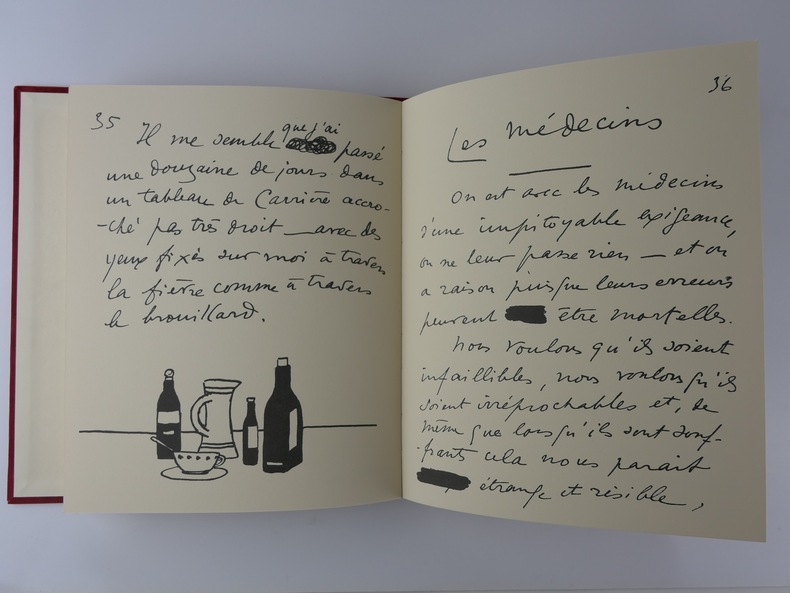 35
Il me semble que j'ai passé
une douzaine de jours dans
un tableau de Carrière accro-
-ché pas très droit — avec des
yeux fixés sur moi à travers
la fièvre comme à travers
le brouillard.
36
Les médecins
On est avec les médecins
d'une impitoyable exigeance,
on ne leur passe rien — et on
a raison puisque leurs erreurs
peuvent être mortelles.
Nous voulons qu'ils soient
infaillibles, nous voulons qu'ils
soient irréprochables et, de
même que lorsqu'ils sont souf-
-frants cela nous paraît
étrange et risible,